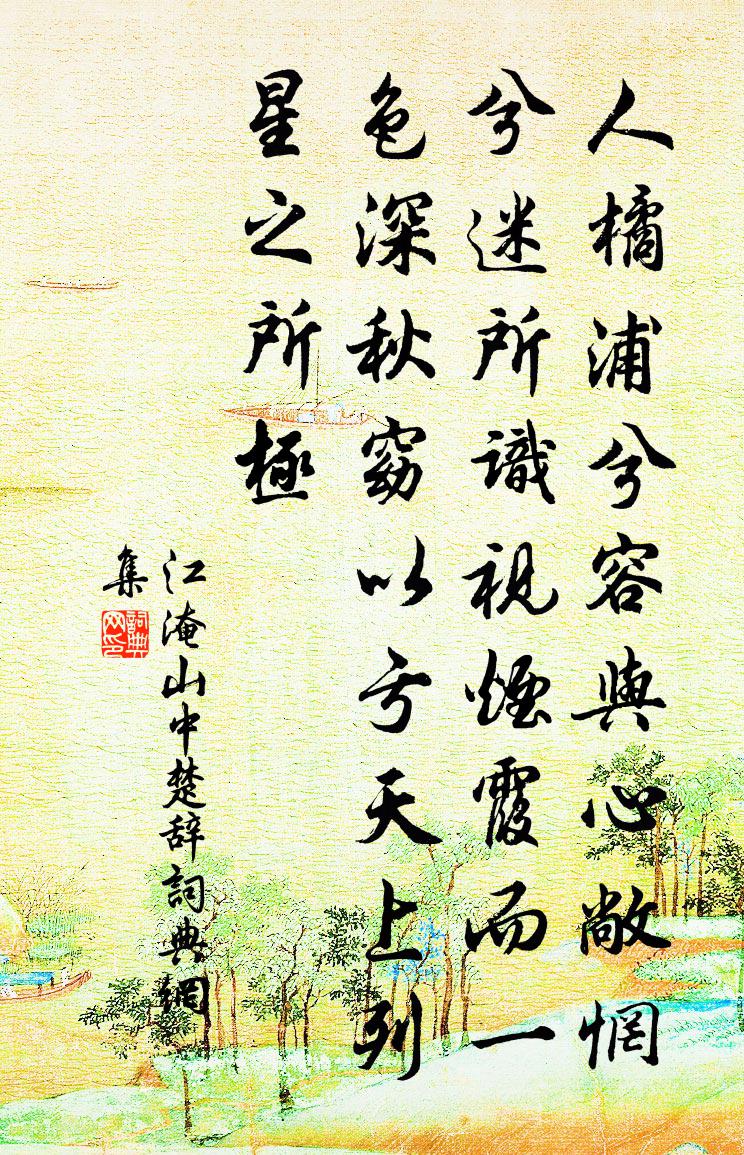 人橘浦兮容與心敞惘
兮迷所識視煙霞而一
色深秋窈以亏天上列
星之所極
江淹山中楚辞詞典網
集
詞典网印